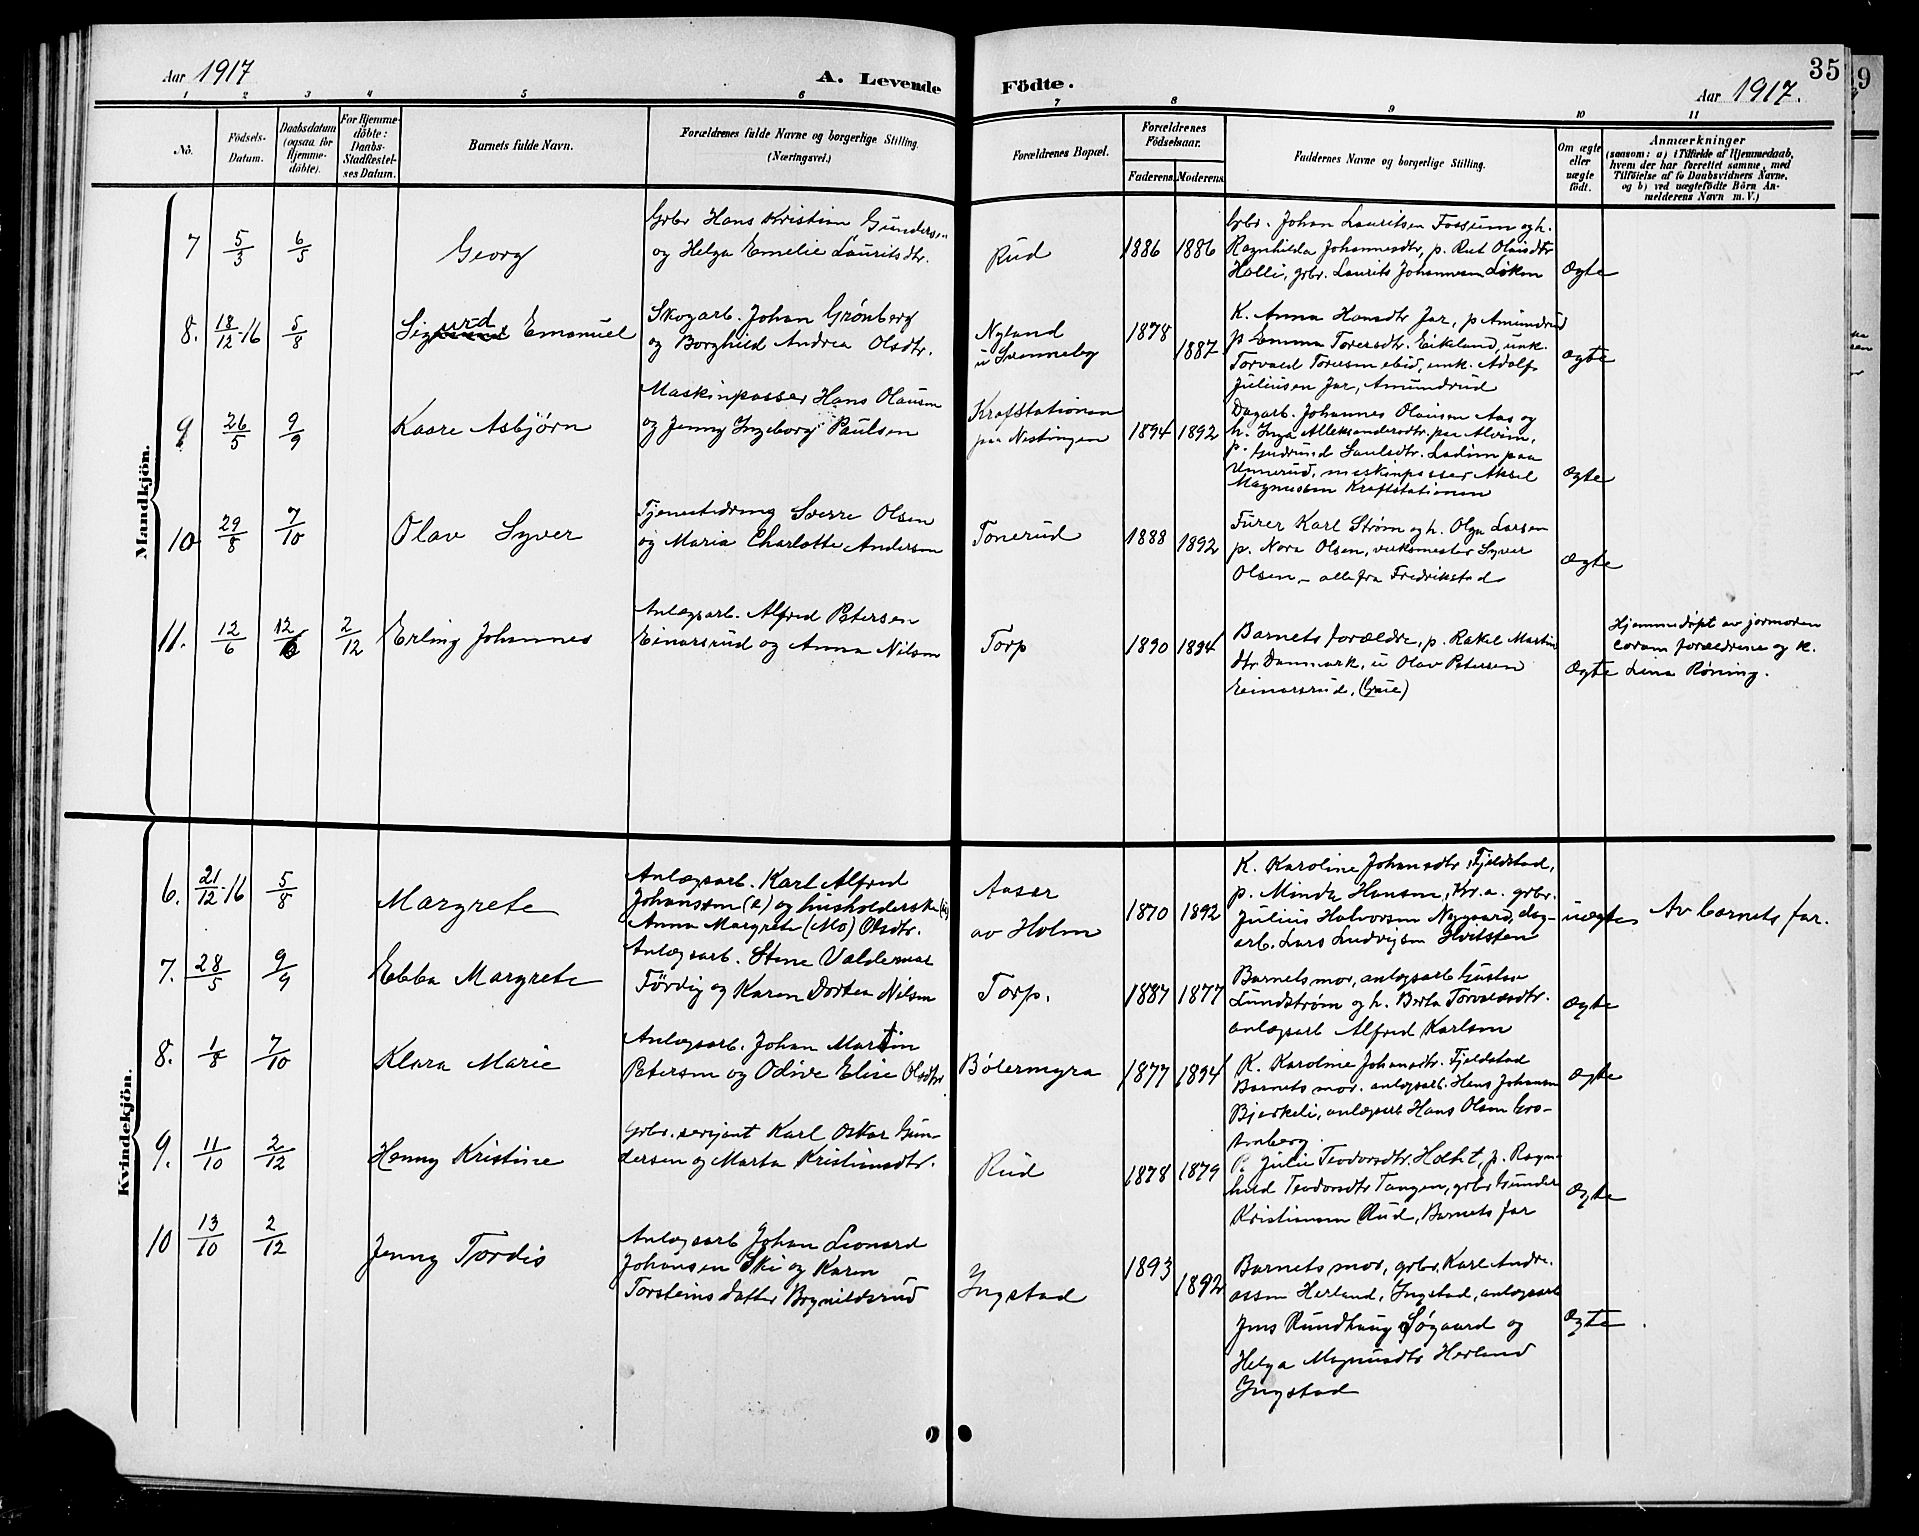 Aar 1917
A. Levende
Födte.
35
Aar 1917.
1 2 3 4 5 6 7 8 9 10 11
No.
Födsels-
Datum.
Daabsdatum
(ogsaa for
Hjemme-
döbte).
For Hjemme-
döbte:
Daabs-
Stadfæstel-
ses Datum.
Barnets fulde Navn.
Forældrenes fulde Navne og borgerlige Stilling.
(Næringsvei.)
Forældrenes Bopæl.
Forældrenes
Födselsaar.
Faderens.
Moderens.
Faddernes Navne og borgerlige Stilling.
Om ægte
eller
uægte
födt.
Anmærkninger
(saasom: a) i Tilfælde af Hjemmedaab,
hvem der har forrettet samme, med
Tilföielse af to Daabsvidners Navne,
og b) ved uægtefödte Börn An-
melderens Navn m. V.)
Mandkjön.
7 5/3 6/5 Georg
Grbr Hans Kristian Gundersen
og Helga Emelie Lauritsdtr.
Rud
1886 1886
Grbr. Johan Lauritsen Fossum og h.
Ragnhilda Johannesdtr, p. Rut Olausdtr
Holli, grbr. Laurits Johannesen Løken
Ægte
8. 18/12-16 5/8 Sigurd Emanuel
Skogarb. Johan Grønberg
og Borghild Andrea Olsdtr.
Nyland
u
1878 1887
K. Anna Hansdtr Jar, p Amundrud
p Emma Toresdtr. Eikland, unk.
Torvald Toresen ibid, unk. Adolf
Juliusen Jar, Amundrud
Ægte
9 26/5 9/9 Kaare Asbjørn
Maskinpasser Hans Olausen
og Jenny Ingeborg Paulsen
Krafstationen
paa Nestingen
1894 1892
Dagarb. Johannes Olausen Aas og
h. Inga Alleksandersdtr. paa Alvim,
p. Gudrund Paulsdtr. Ladim paa
Unnerud, maskinpasser Aksel
Magnussen Kraftstationen
Ægte
10 29/8 7/10 Olav Syver
Tjenestedreng Sverre Olsen
og Maria Charlotte Andersen
Tonerud
1888 1892
Furer Karl Strøm og h. Olga Larsen
p. Nora Olsen, verksmester Syver
Olsen – alle fra Fredrikstad
Ægte
11. 12/6 12/6 2/12 Erling Johannes
Anlægsarb. Alfred Petersen
Einarsrud og Anna Nilsen
Torp
1890 1894
Barnets forældre, p. Rakel Martin
dtr Danmark, u Olav Petersen
Einarsrud, (Grue)
Ægte
Hjemmedøpt av jormoren
coram forældrene og k.
Lina Røning.
Kvindekjön.
6. 21/12-16 5/8 Margrete
Anlægsarb. Karl Alfred
Johansen (e) og husholderske (ug)
Anna Margrete (Mo) Olsdtr.
Aaser
av Holm
1870 1892
K. Karoline Johansdtr. Fjeldstad,
p. Minda Hansen, Kr.a. grbr.
Julius Halvorsen Nygaard, dag-
arb. Lars Ludvigsen Hvitsten
uægte
Av barnets far.
7. 28/5 9/9 Ebba Margrete
Anlægsarb. Stene Valdemar
Fördig og Karen Dortea Nilsen
Torp.
1887 1877
Barnets mor, anlægsarb Gustav
Lundstrøm og h. Berta Torvaldsdtr.
anlægsarb Alfred Karlsen
Ægte
8. 1/8 7/10 Klara Marie
Anlægsarb. Johan Martin
Petersen og Odive Elise Olsdtr
Bölermyra
1877 1894
K. Karoline Johansdtr. Fjeldstad
Barnets mor. anlægsarb. Hans Johansen
Bjerkeli, anlægsarb Hans Olsen Gros-
Ægte
9. 11/10 2/12 Henny Kristine
Grbr. serjant Karl Oskar Gun-
dersen og Marta Kristiansdtr.
Rud
1878 1879
P. Julie Teodorsdtr. Holtet, p. Ragn-
hild Teodorsdtr Tangen, grbr Gunder
Kristiansen Rud, Barnets far
Ægte
10 13/10 2/12 Jenny Tordis
Anlægsarb Johan Leonard
Johansen Ski og Karen
Torsteinsdatter Brynildsrud
Ingstad
1893 1892
Barnets mor, grbr. Karl Andre-
assen Herland, Ingstad, anlægsarb
Jens Rundhaug Søgaard og
Helga Magnusdtr Herland
Ingstad
Ægte